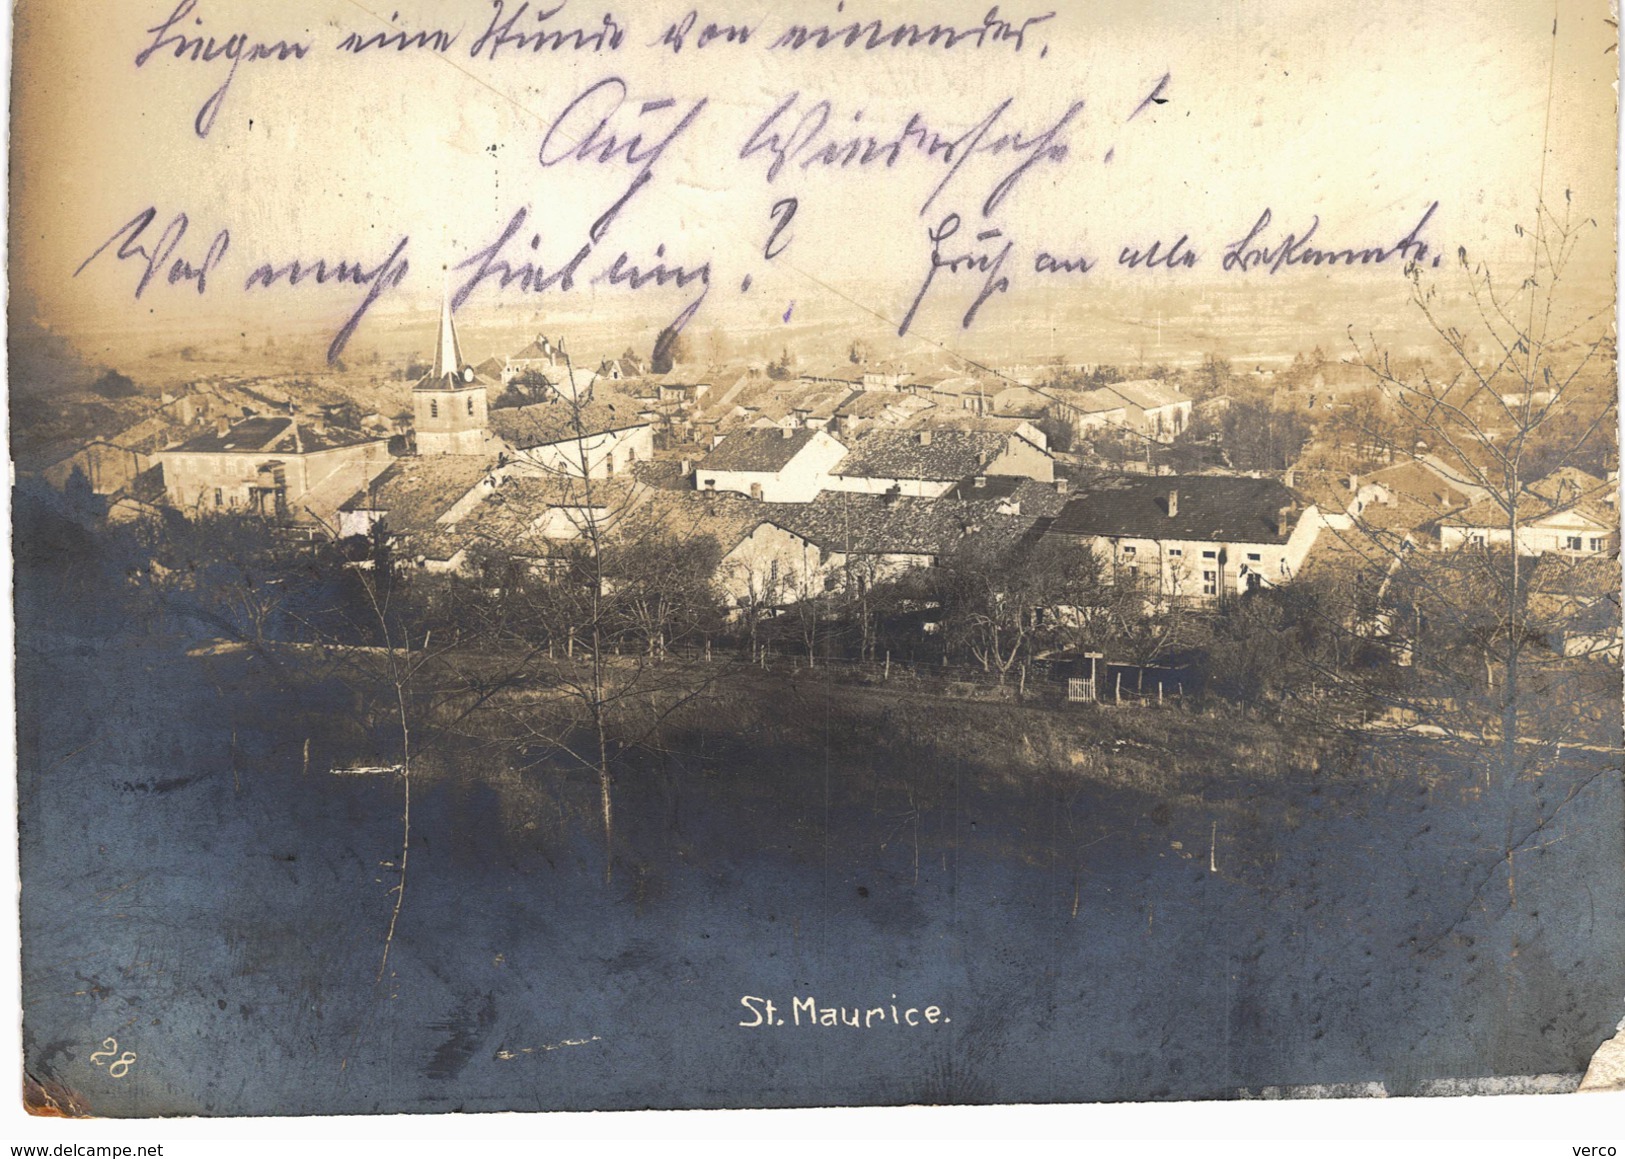 liegen eine Stunde von einander.
Auf Wiedersehn!
Was macht Hiebling? Gruß an alle Bekannte.
St. Maurice.
28
www.delcampe.net
verco